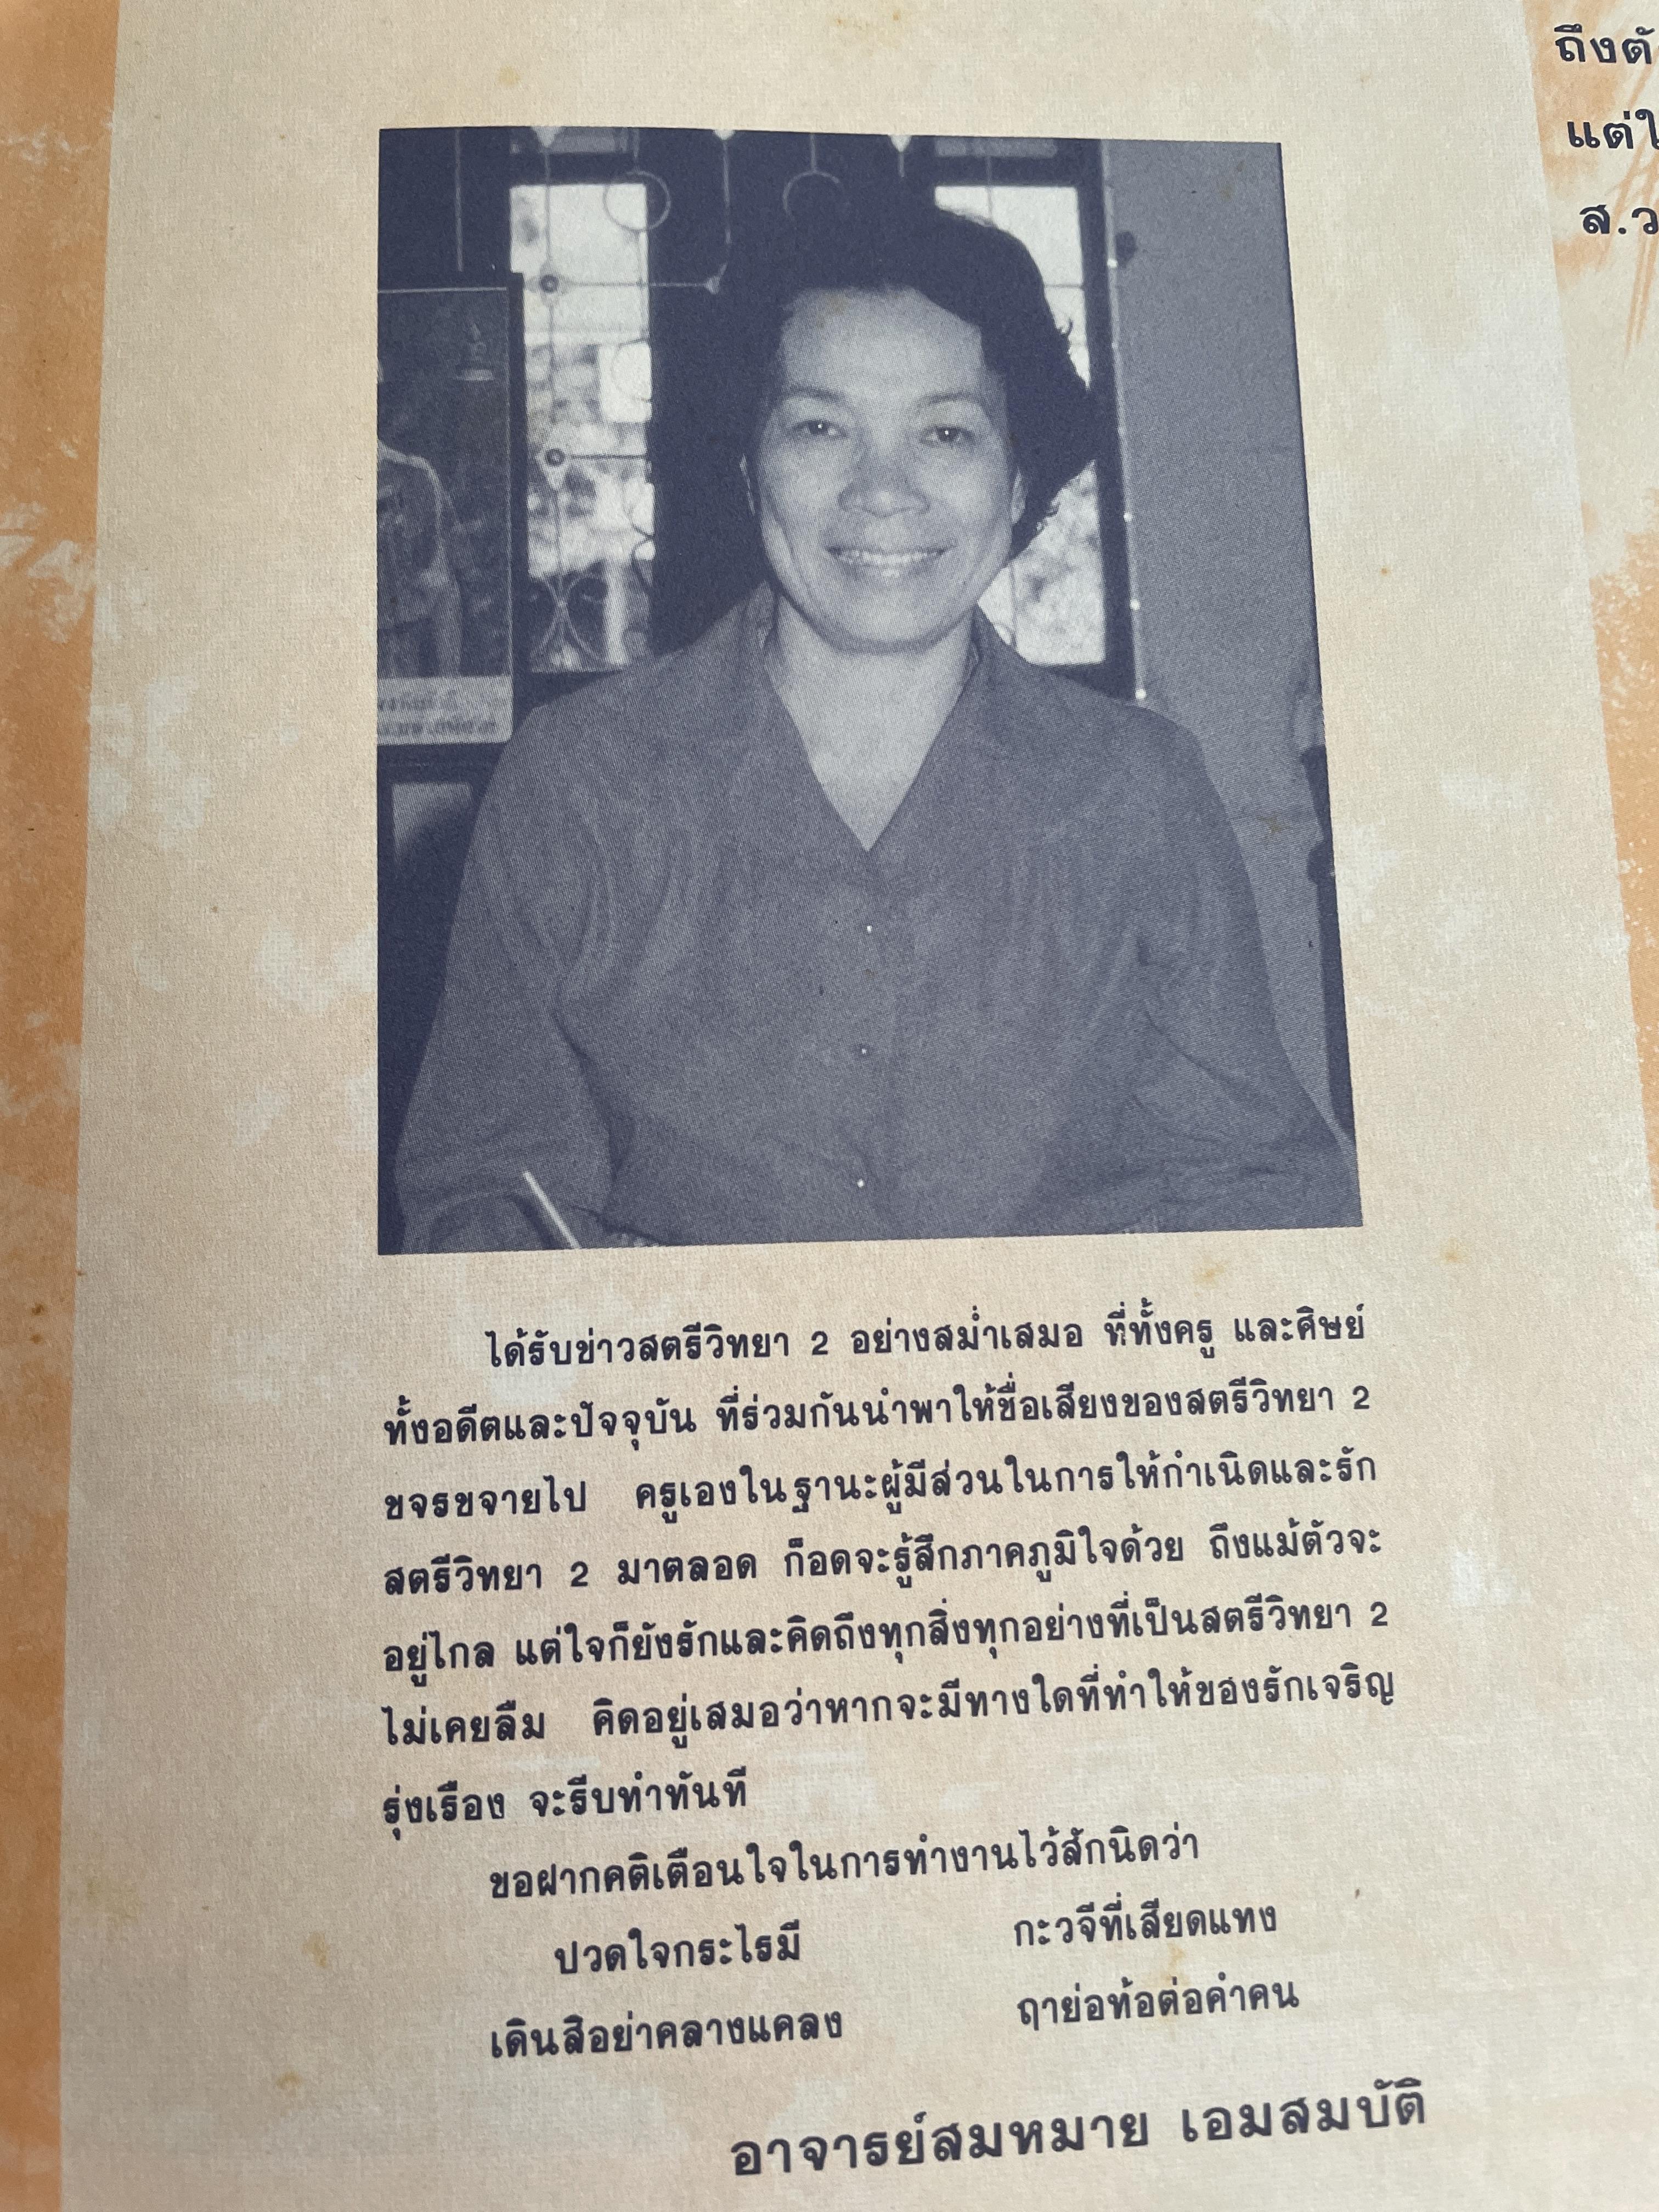 ถึงตั
แต่ใ
ส.ว
ได้รับข่าวสตรีวิทยา 2 อย่างสม่ำเสมอ ที่ทั้งครู และศิษย์
ทั้งอดีตและปัจจุบัน ที่ร่วมกันนำพาให้ชื่อเสียงของสตรีวิทยา 2
ขจรขจายไป ครูเองในฐานะผู้มีส่วนในการให้กำเนิดและรัก
สตรีวิทยา 2 มาตลอด ก็อดจะรู้สึกภาคภูมิใจด้วย ถึงแม้ตัวจะ
อยู่ไกล แต่ใจก็ยังรักและคิดถึงทุกสิ่งทุกอย่างที่เป็นสตรีวิทยา 2
ไม่เคยลืม คิดอยู่เสมอว่าหากจะมีทางใดที่ทำให้ของรักเจริญ
รุ่งเรือง จะรีบทำทันที
ขอฝากคติเตือนใจในการทำงานไว้สักนิดว่า
ปวดใจกระไรมี กะวจีที่เสียดแทง
เดินสิอย่าคลางแคลง ฤาย่อท้อต่อคำคน
อาจารย์สมหมาย เอมสมบัติ